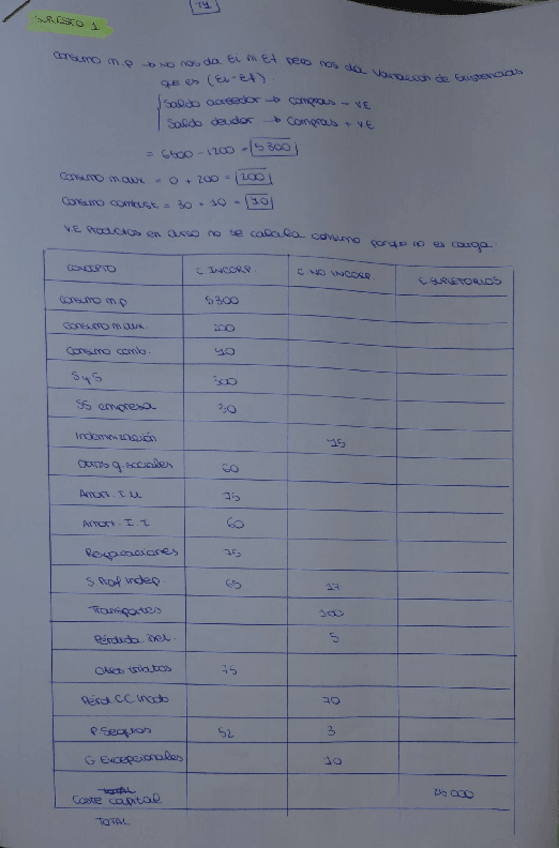 T4
SUPUESTO 1
Consumo m.p → no nos da Ei ni Ef pero nos da Variación de Existencias
que es (Ei - Ef).
Saldo acreedor → compras - VE
Saldo deudor → compras + VE
= 6500 - 1200 = 5300
Consumo m aux = 0 + 200 = 200
Consumo combust = 30 + 10 =
V.E Productos en curso no se calcula consumo porque no es carga
CONCEPTO C INCORP. C NO INCORP. C SUPLETORIOS
Consumo mp 5300
Consumo m aux. 200
Consumo comb.
S y S 300
SS empresa 30
Indemnización 15
Otros g. sociales 60
Amort. I.M 75
Amort. I.I 60
Reparaciones
S Prof indep. 65 17
Transportes 100
Pérdida inc. 5
Otros tributos
Pérd. CC Incob 70
P Seguros 52 3
G Excepcionales 10
Coste capital
TOTAL